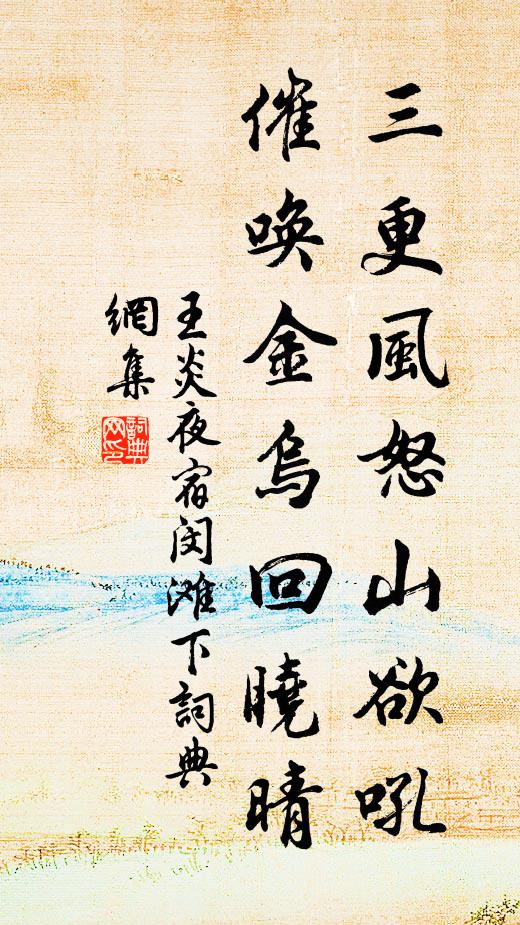 三更風怒山欲吼
催唤金烏回曉晴
王炎夜宿闵滩下詞典
網集
詞典
网印